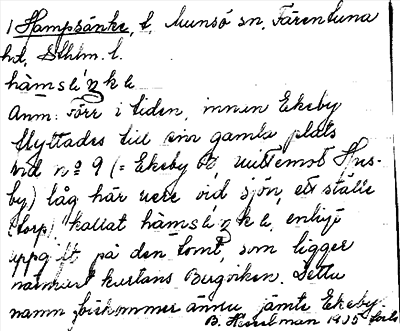 1 Hampsänke, t. Munsö sn, Färentuna
hd, Sthlm. l.
hàmsä̀ŋke
Anm: Förr i tiden, innan Ekeby
flyttades till sin gamla plats
vid nº 9 (= Ekeby by, mittemot Hus-
by) låg här nere vid sjön, ett ställe
(torp) kallat hàmsäŋke, enligt
uppgift på den tomt, som ligger
närmast kustens Bergviken. Detta
namn förekommer ännu jämte Ekeby.
B. Hesselman 1935